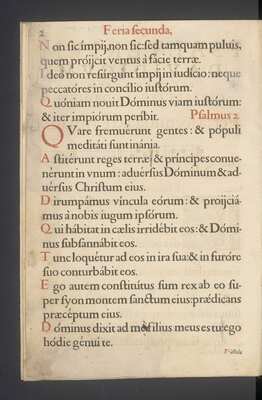 2
Feria secunda,
Non sic impij, non sic: sed tamquam puluis,
quem próijcit ventus à fácie terræ.
Ideo non resúrgunt ímpij in iudício: neque
peccatóres in concílio iustórum.
Quóniam nouit Dóminus viam iustórum:
& iter impiórum períbit.
Psalmus 2.
QVare fremuérunt gentes: & pópuli
meditáti sunt inánia.
Astitérunt reges terræ, & príncipes conue-
nérunt in vnum: aduérsus Dóminum & ad-
uérsus Christum eius.
Dirumpámus víncula eórum: & proijciá-
mus à nobis iugum ipsórum.
Qui hábitat in cælis irridébit eos: & Dómi-
nus subsannábit eos.
Tunc loquétur ad eos in ira sua: & in furóre
suo conturbábit eos.
Ego autem constitútus sum rex ab eo su-
per syon montem sanctum eius: prædícans
præcéptum eius.
Dóminus dixit ad me: filius meus es tu: ego
hódie génui te.